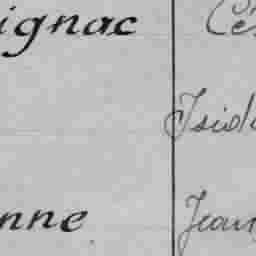 ignac Cés
Isido
nne Jean